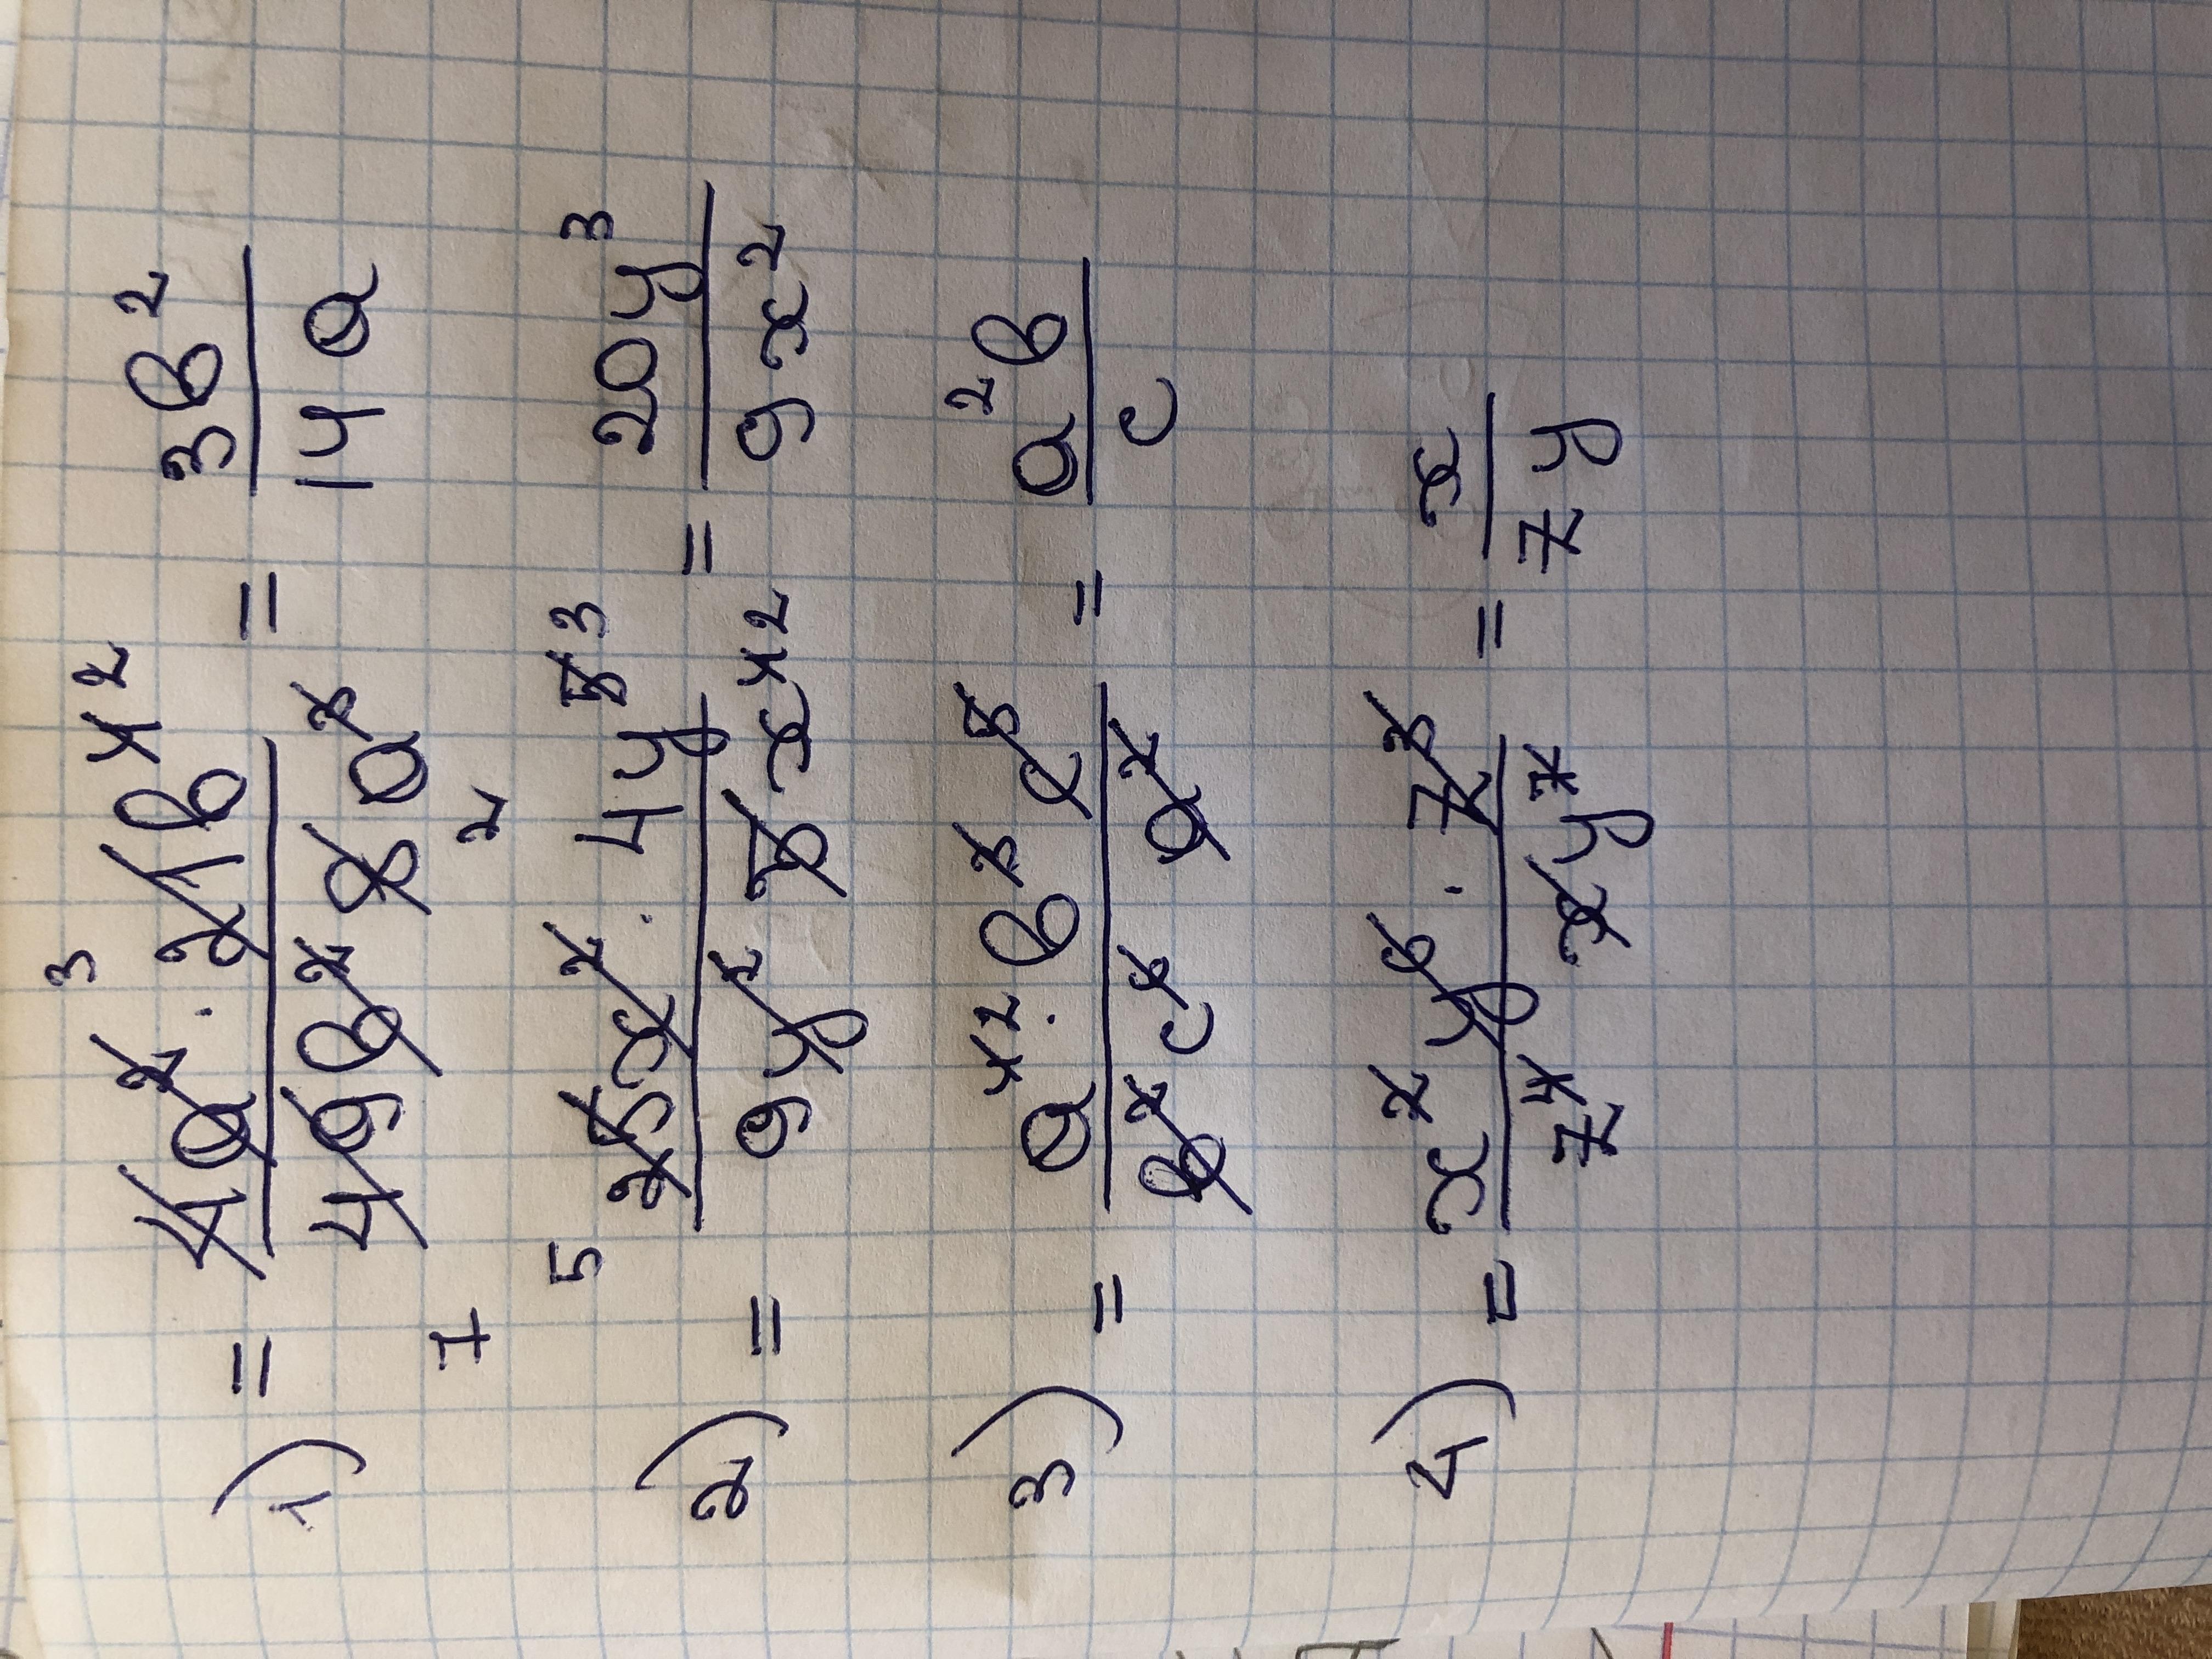 1) = 4a² · 21b⁴ / 49b² 8a³ = 3b² / 14a
2) = 25x² · 4y⁵ / 9y² 5x⁴ = 20y³ / 9x²
3) = a⁴ · b³ c⁵ / b² c⁶ a² = a²b / c
4) = x² y⁶ · z³ / z⁴ x y⁷ = x / zy